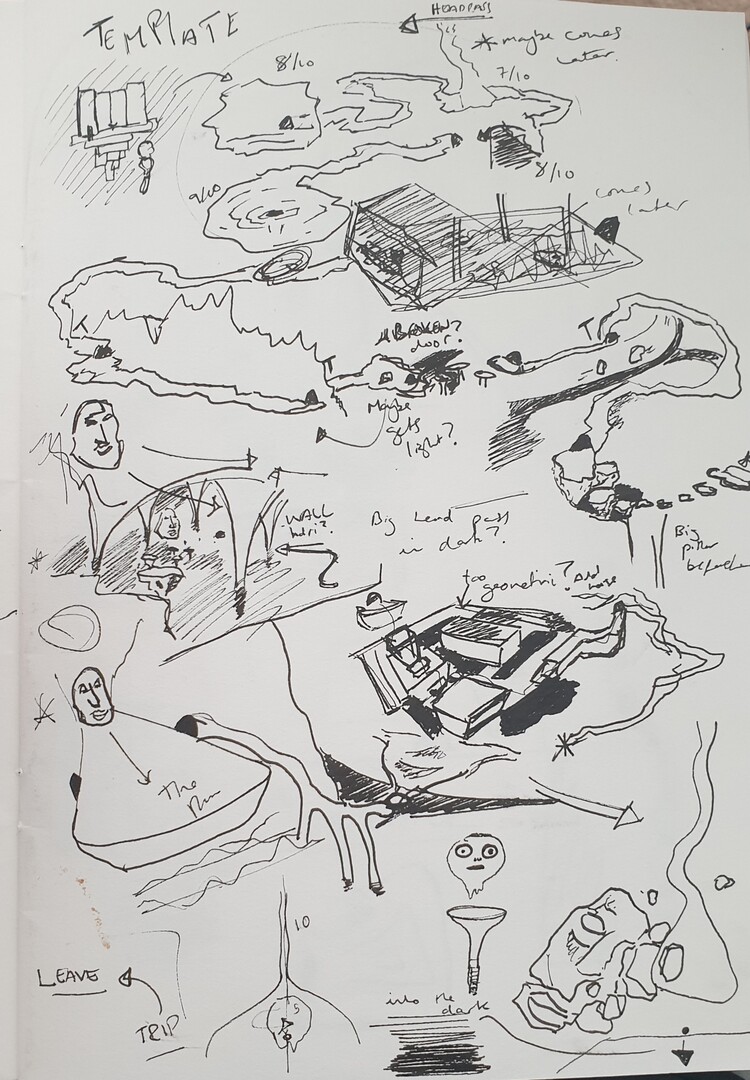 TEMPLATE
HEADPASS
*maybe comes
later.
8/10
7/10
8/10
9/10
comes
later
BROKEN?
door?
Maybe
gets
light?
WALL
Big head pass
in dark?
Big
pillar
too
geometric? Add
more
The
Run
10
5
LEAVE
TRIP
into the
dark